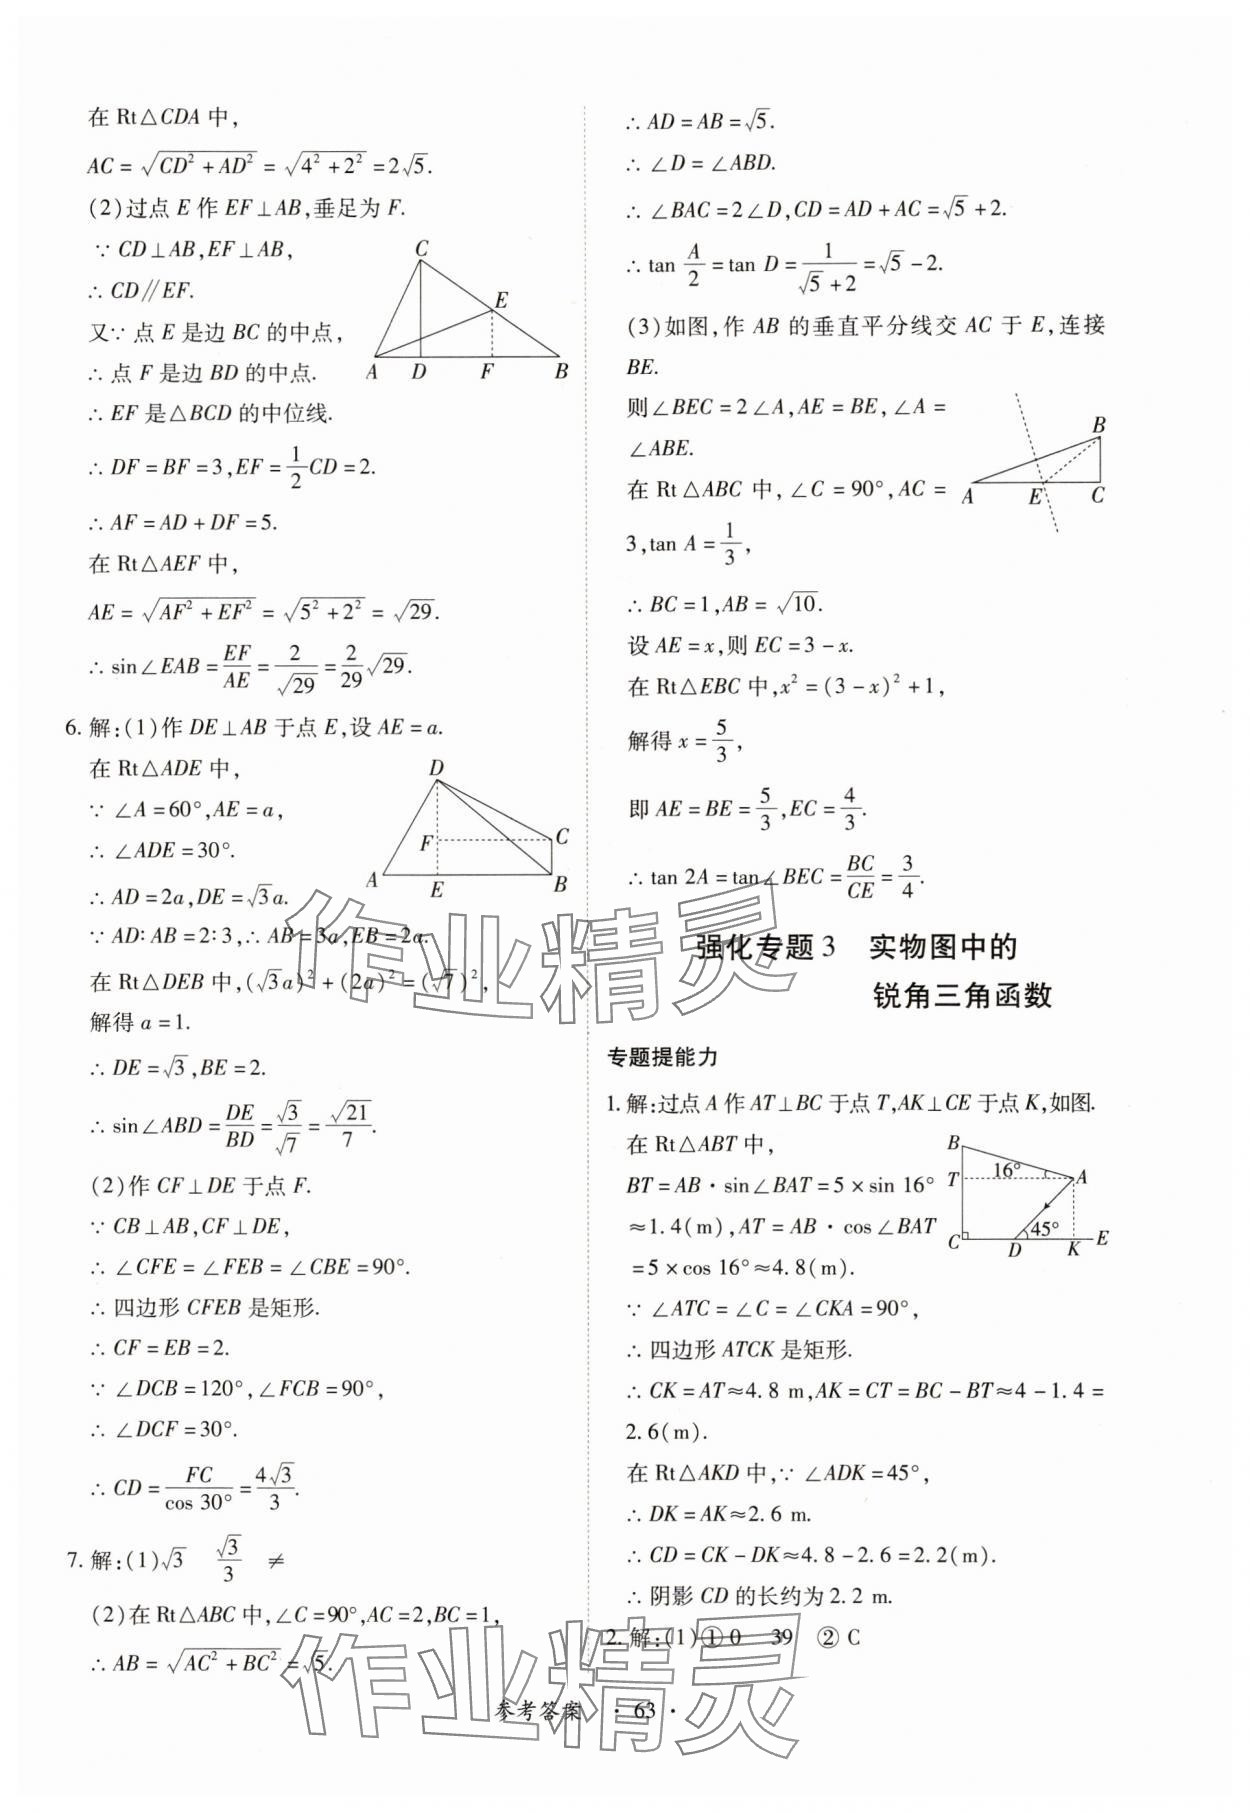 在 Rt△CDA 中,
AC = √(CD² + AD²) = √(4² + 2²) = 2√5.
(2)过点 E 作 EF⊥AB,垂足为 F.
∵ CD⊥AB,EF⊥AB,
∴ CD∥EF.
又∵ 点 E 是边 BC 的中点,
∴ 点 F 是边 BD 的中点.
∴ EF 是△BCD 的中位线.
∴ DF = BF = 3,EF = 1/2 CD = 2.
∴ AF = AD + DF = 5.
在 Rt△AEF 中,
AE = √(AF² + EF²) = √(5² + 2²) = √29.
∴ sin∠EAB = EF/AE = 2/√29 = 2/29 √29.
C
E
A D F B
6. 解:(1)作 DE⊥AB 于点 E,设 AE = a.
在 Rt△ADE 中,
∵ ∠A = 60°,AE = a,
∴ ∠ADE = 30°.
∴ AD = 2a,DE = √3a.
∵ AD∶AB = 2∶3,∴ AB = 3a,EB = 2a.
在 Rt△DEB 中,(√3a)² + (2a)² = (√7)²,
解得 a = 1.
∴ DE = √3,BE = 2.
∴ sin∠ABD = DE/BD = √3/√7 = √21/7.
(2)作 CF⊥DE 于点 F.
∵ CB⊥AB,CF⊥DE,
∴ ∠CFE = ∠FEB = ∠CBE = 90°.
∴ 四边形 CFEB 是矩形.
∴ CF = EB = 2.
∵ ∠DCB = 120°,∠FCB = 90°,
∴ ∠DCF = 30°.
∴ CD = FC/cos 30° = 4√3/3.
D
F C
A E B
7. 解:(1)√3 √3/3 ≠
(2)在 Rt△ABC 中,∠C = 90°,AC = 2,BC = 1,
∴ AB = √(AC² + BC²) = √5.
∴ AD = AB = √5.
∴ ∠D = ∠ABD.
∴ ∠BAC = 2∠D,CD = AD + AC = √5 + 2.
∴ tan A/2 = tan D = 1/(√5 + 2) = √5 - 2.
(3)如图,作 AB 的垂直平分线交 AC 于 E,连接
BE.
则∠BEC = 2∠A,AE = BE,∠A =
∠ABE.
在 Rt△ABC 中,∠C = 90°,AC =
3,tan A = 1/3,
∴ BC = 1,AB = √10.
设 AE = x,则 EC = 3 - x.
在 Rt△EBC 中,x² = (3 - x)² + 1,
解得 x = 5/3,
即 AE = BE = 5/3,EC = 4/3.
∴ tan 2A = tan∠BEC = BC/CE = 3/4.
B
A E C
强化专题 3 实物图中的
锐角三角函数
专题提能力
1. 解:过点 A 作 AT⊥BC 于点 T,AK⊥CE 于点 K,如图.
在 Rt△ABT 中,
BT = AB·sin∠BAT = 5 × sin 16°
≈1.4(m),AT = AB·cos∠BAT
= 5 × cos 16°≈4.8(m).
∵ ∠ATC = ∠C = ∠CKA = 90°,
∴ 四边形 ATCK 是矩形.
∴ CK = AT≈4.8 m,AK = CT = BC - BT≈4 - 1.4 =
2.6(m).
在 Rt△AKD 中,∵ ∠ADK = 45°,
∴ DK = AK≈2.6 m.
∴ CD = CK - DK≈4.8 - 2.6 = 2.2(m).
∴ 阴影 CD 的长约为 2.2 m.
B
T 16° A
45°
C D K E
2. 解:(1)①0 39 ②C
参考答案 · 63 ·
作业精灵
作业精灵